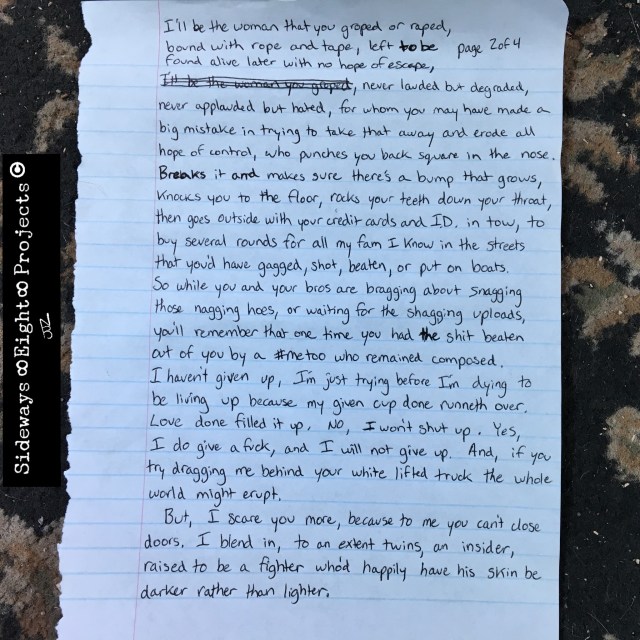 I'll be the woman that you groped or raped,
bound with rope and tape, left to be
page 2 of 4
found alive later with no hope of escape,
I'll be the woman you groped, never lauded but degraded,
never applauded but hated, for whom you may have made a
big mistake in trying to take that away and erode all
hope of control, who punches you back square in the nose.
Breaks it and makes sure there's a bump that grows,
Knocks you to the floor, rocks your teeth down your throat,
then goes outside with your credit cards and ID. in tow, to
buy several rounds for all my fam I know in the streets
that you'd have gagged, shot, beaten, or put on boats.
So while you and your bros are bragging about snagging
those nagging hoes, or waiting for the shagging uploads,
you'll remember that one time you had the shit beaten
out of you by a #metoo who remained composed.
I haven't given up, I'm just trying before I'm dying to
be living up because my given cup done runneth over.
Love done filled it up. No, I won't shut up. Yes,
I do give a fuck, and I will not give up. And, if you
try dragging me behind your white lifted truck the whole
world might erupt.
But, I scare you more, because to me you can't close
doors. I blend in, to an extent twins, an insider,
raised to be a fighter who'd happily have his skin be
darker rather than lighter.
Sideways ∞ Eight∞ Projects ©